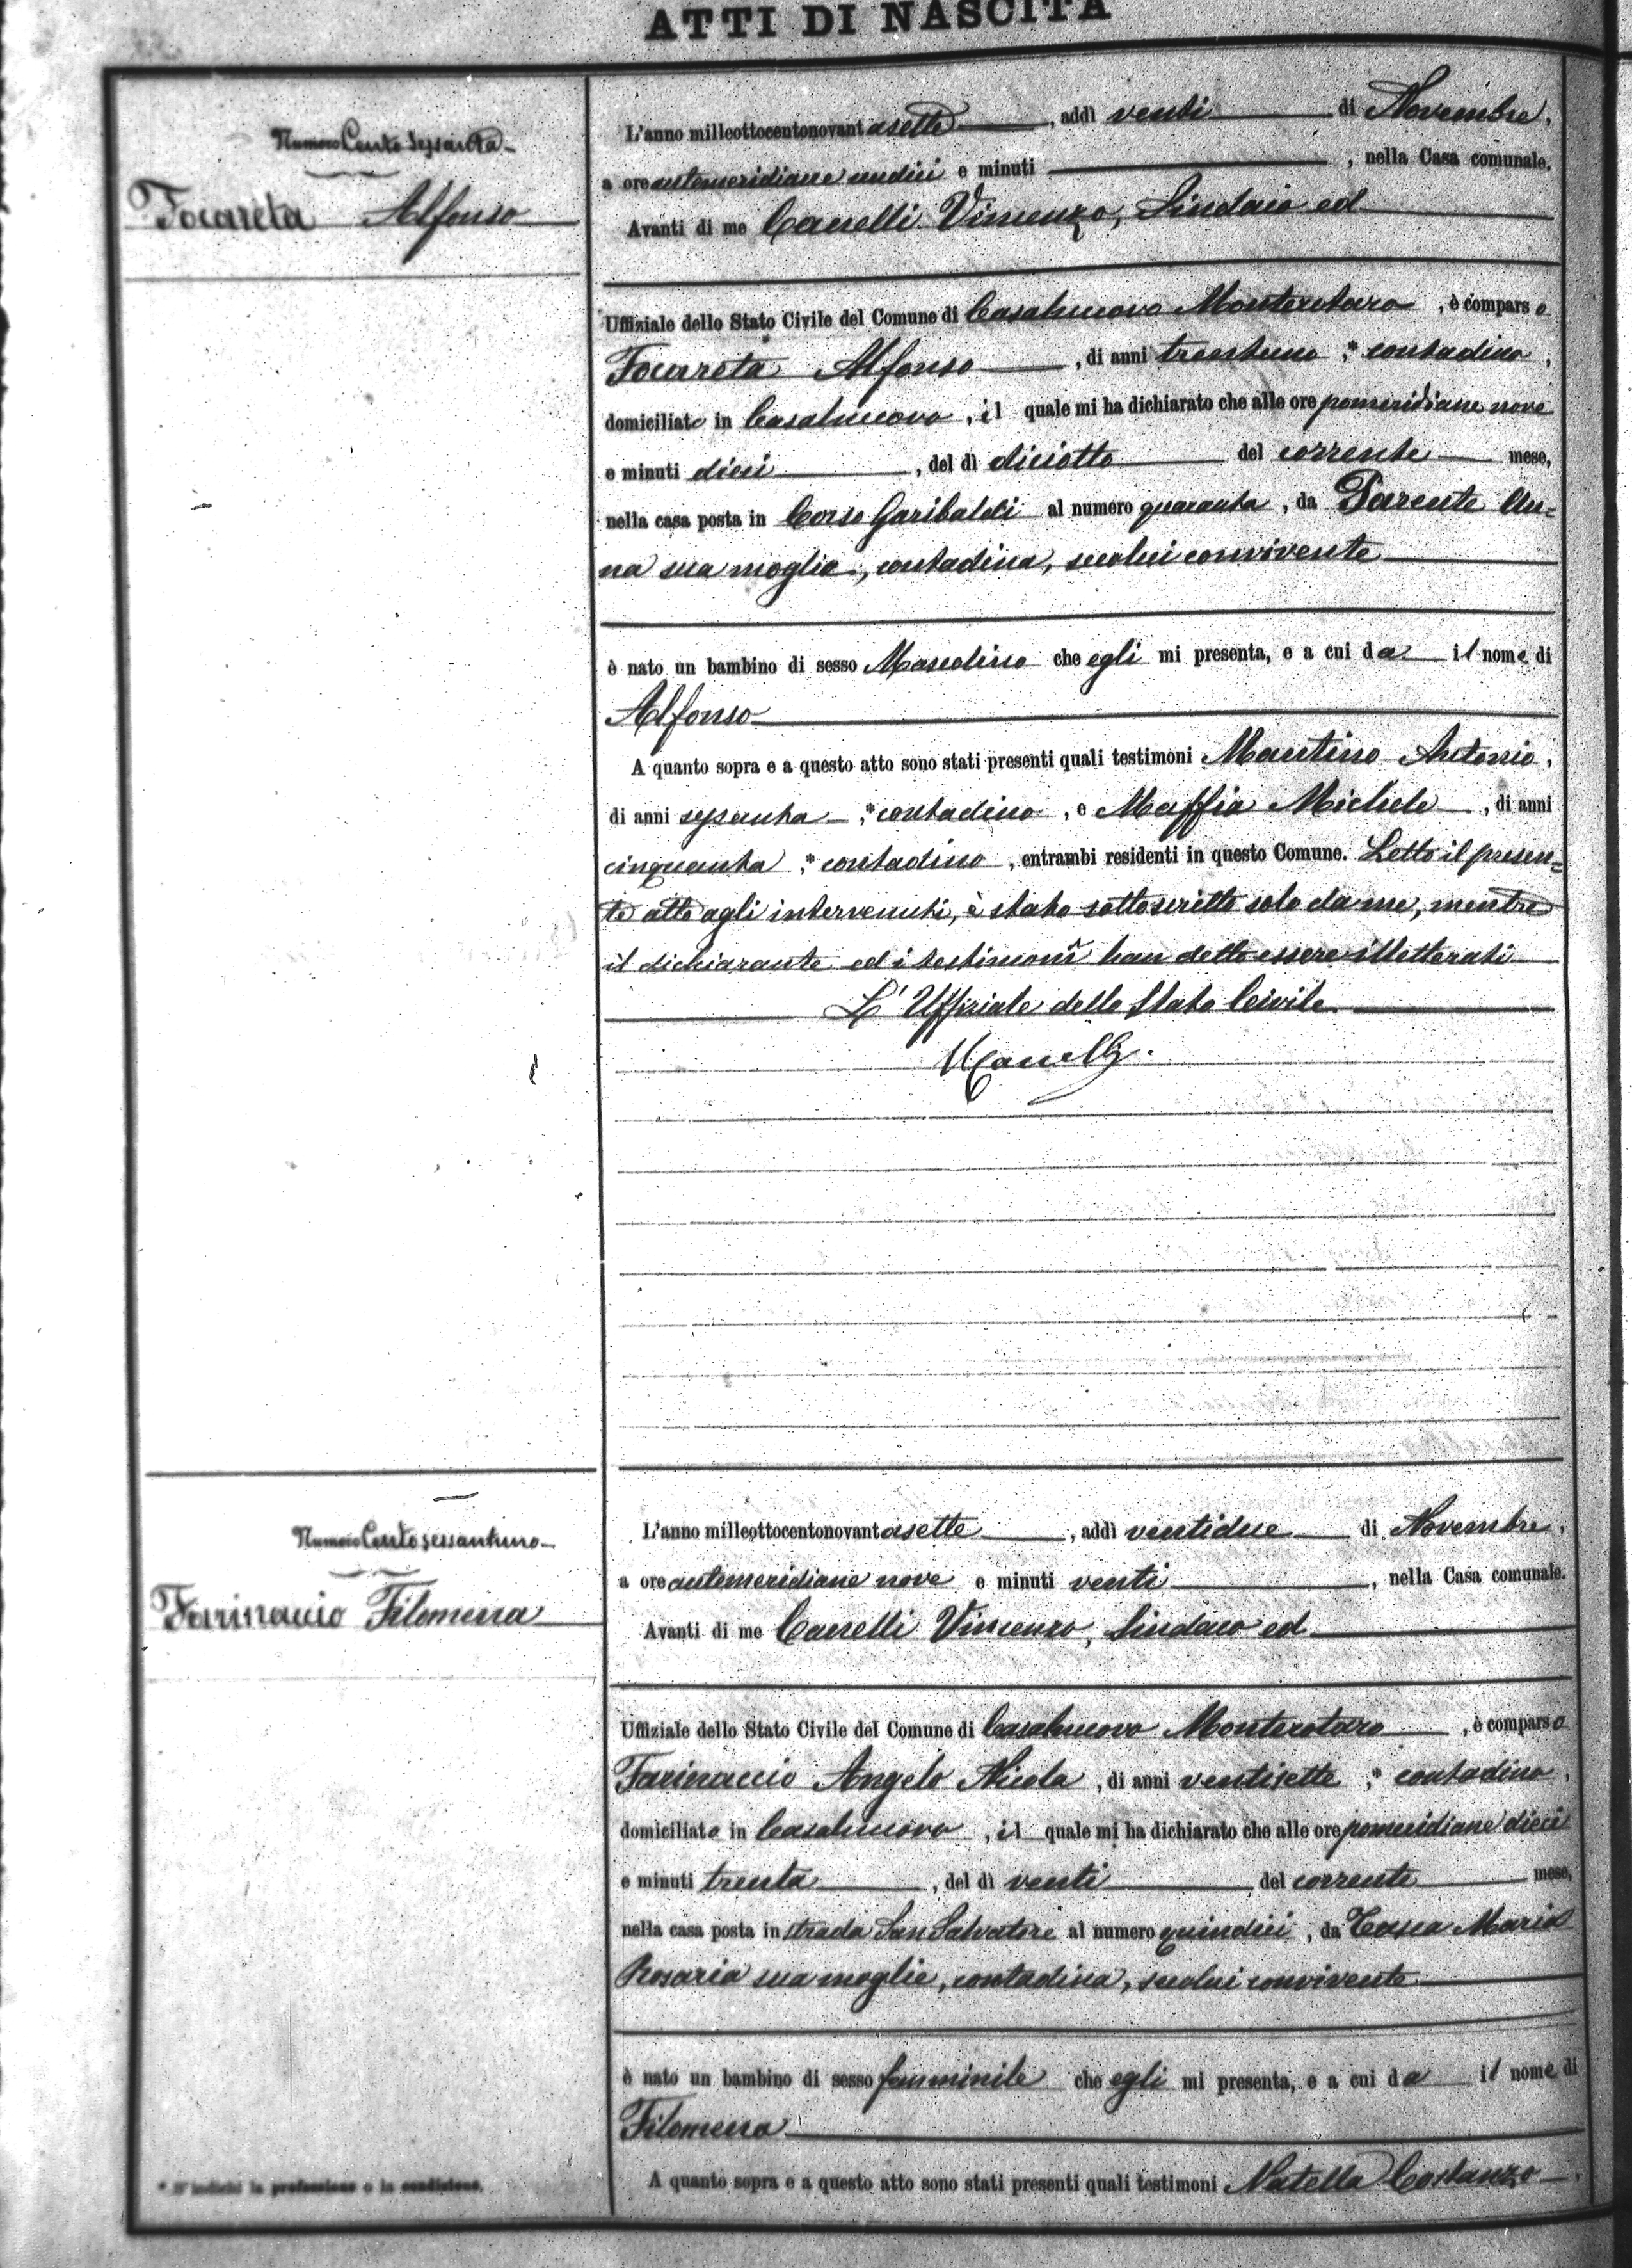 ATTI DI NASCITA
Numero Cento sessanta
Focareta Alfonso
L'anno milleottocentonovantasette, addì venti di Novembre,
a ore antemeridiane undici e minuti , nella Casa comunale.
Avanti di me Canelli Vincenzo, Sindaco ed
Uffiziale dello Stato Civile del Comune di Casalnuovo Monterotaro, è comparso
Focareta Alfonso, di anni trentuno,* contadino,
domiciliato in Casalnuovo, il quale mi ha dichiarato che alle ore pomeridiane nove
e minuti dieci, del dì diciotto del corrente mese,
nella casa posta in Corso Garibaldi al numero quaranta, da Parente An=
na sua moglie, contadina, secolui convivente
è nato un bambino di sesso Mascolino che egli mi presenta, e a cui da il nome di
Alfonso
A quanto sopra e a questo atto sono stati presenti quali testimoni Mantino Antonio,
di anni sessanta,* contadino, e Maffia Michele, di anni
cinquanta,* contadino, entrambi residenti in questo Comune. Letto il presen=
te atto agli intervenuti, è stato sottoscritto solo da me, mentre
il dichiarante ed i testimonî han detto essere illetterati
L'Uffiziale dello Stato Civile
VCanelli.
Numero Cento sessantuno
Farinaccio Filomena
L'anno milleottocentonovantasette, addì ventidue di Novembre,
a ore antemeridiane nove e minuti venti, nella Casa comunale.
Avanti di me Canelli Vincenzo, Sindaco ed
Uffiziale dello Stato Civile del Comune di Casalnuovo Monterotaro, è comparso
Farinaccio Angelo Nicola, di anni ventisette,* contadino,
domiciliato in Casalnuovo, il quale mi ha dichiarato che alle ore pomeridiane dieci
e minuti trenta, del dì venti del corrente mese,
nella casa posta in strada San Salvatore al numero quindici, da Tosca Maria
Rosaria sua moglie, contadina, secolui convivente
è nato un bambino di sesso femminile che egli mi presenta, e a cui da il nome di
Filomena
A quanto sopra e a questo atto sono stati presenti quali testimoni Natella Costanzo,
* S'indichi la professione o la condizione.